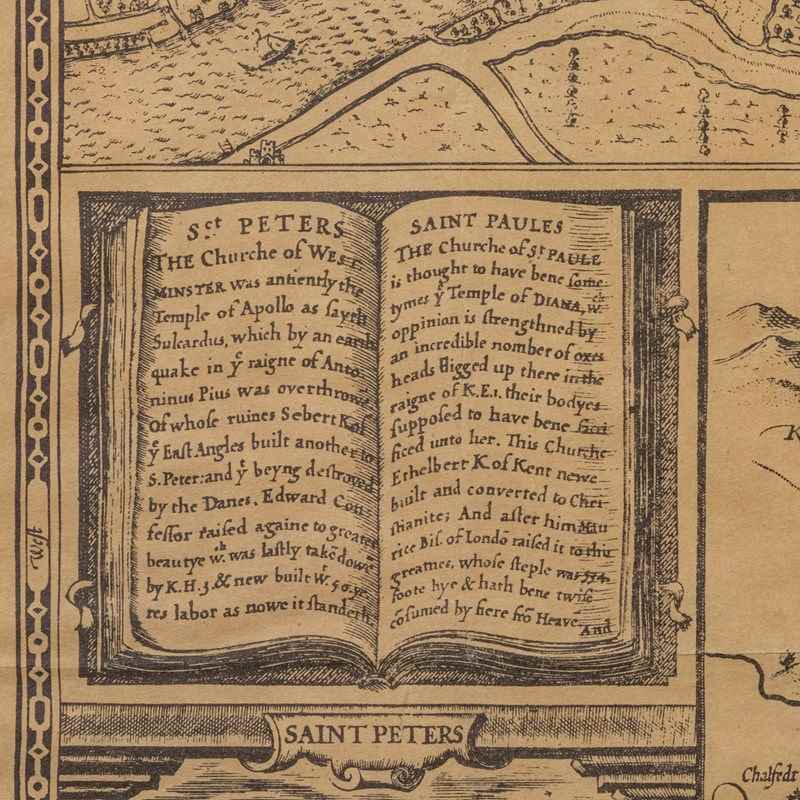 Sct PETERS
THE Churche of WEST-
MINSTER was antiently the
Temple of Apollo as sayth
Sulcardus, which by an earth
quake in yͤ raigne of Anto-
ninus Pius was overthrowē
Of whose ruines Sebert K.of
yͤ East Angles built another to
S. Peter: and yͭ beyng destroyed
by the Danes, Edward Con
fessor raised againe to greater
beautye wͨʰ was lastly takē dowē
by K.H.3. & new built wͭ 50.ye-
res labor as nowe it standeth.
SAINT PAULES
THE Churche of Sͭ PAULE
is thought to have bene some
tymes yͤ Temple of DIANA, wͨʰ
oppinion is strengthned by
an incredible nomber of oxes
heads digged up there in the
raigne of K.E.1. their bodyes
supposed to have bene sacri
ficed unto her. This Churche
Ethelbert K. of Kent newe
built and converted to Chri-
stianite; And after him Mau
rice Bis. of Londō raised it to this
greatnes, whose steple was 534.
foote hye & hath bene twise
cōsumed by fiere frō Heave.
And
SAINT PETERS
K
Chalfedt